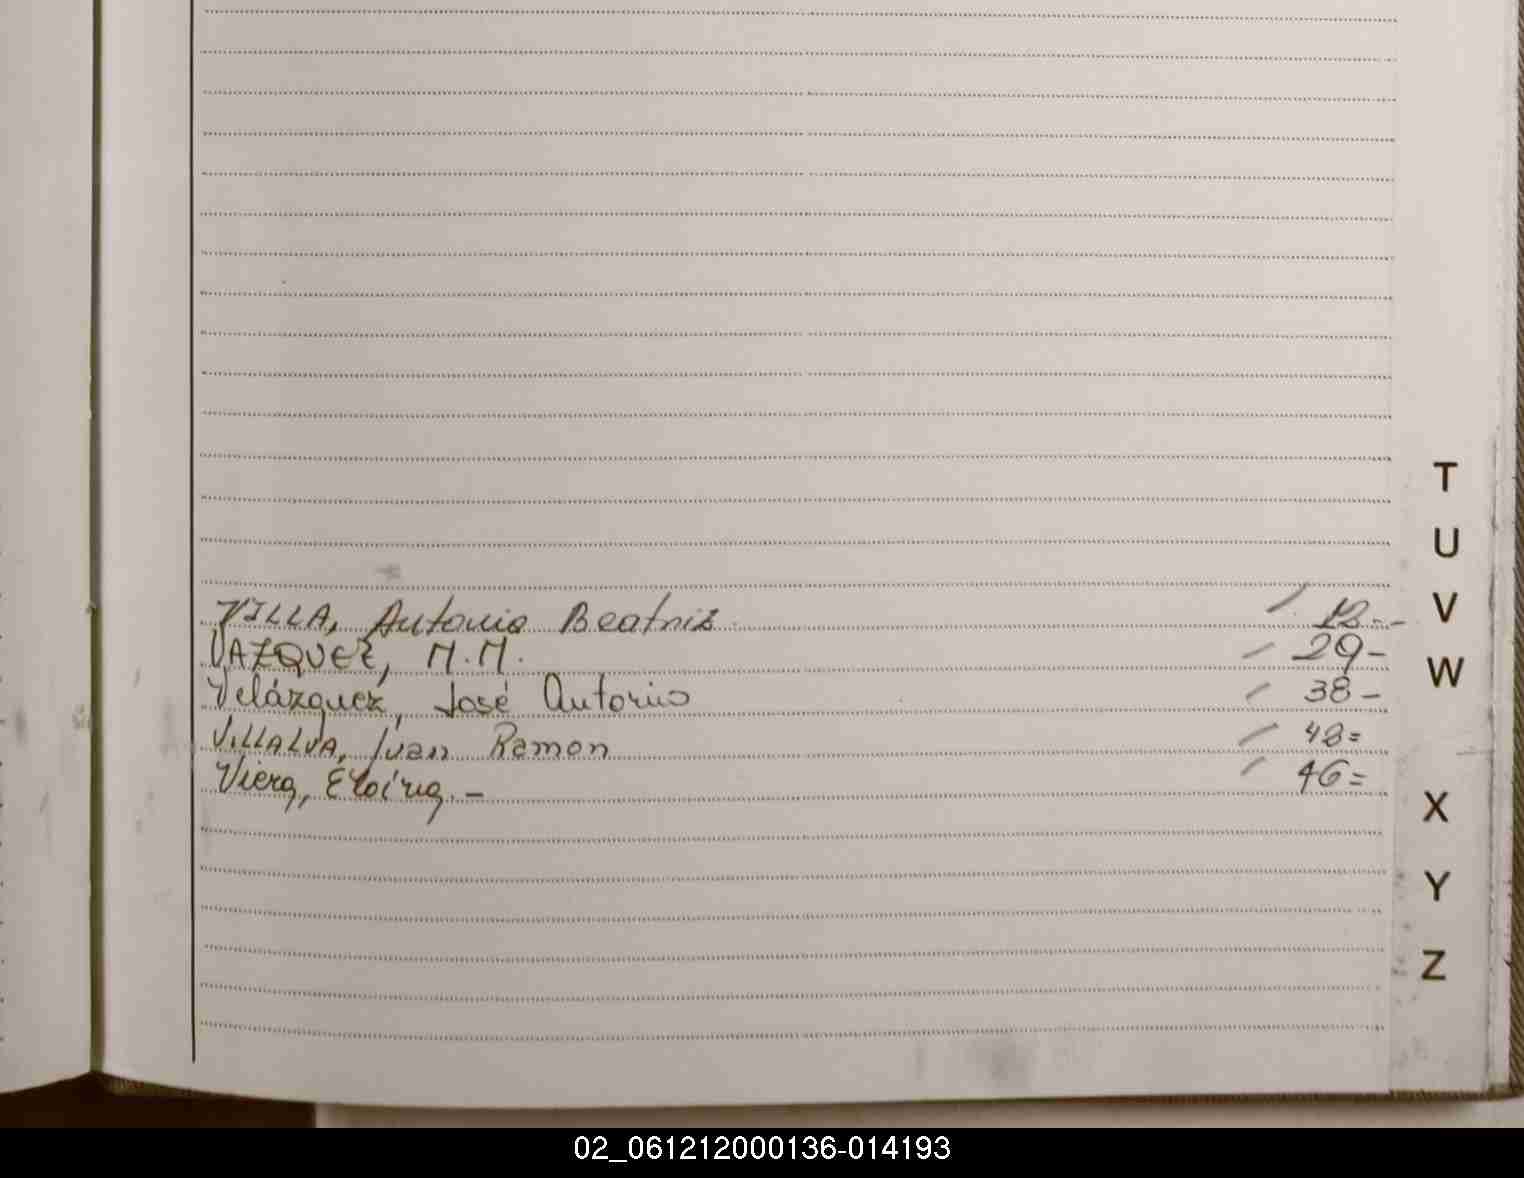 VILLA, Antonio Beatriz / 12.-
VAZQUEZ, M.M. / 29-
Velázquez, José Antonio / 38-
VILLALVA, Juan Ramon / 48=
Viera, / 46=
T
U
V
W
X
Y
Z
02_061212000136-014193